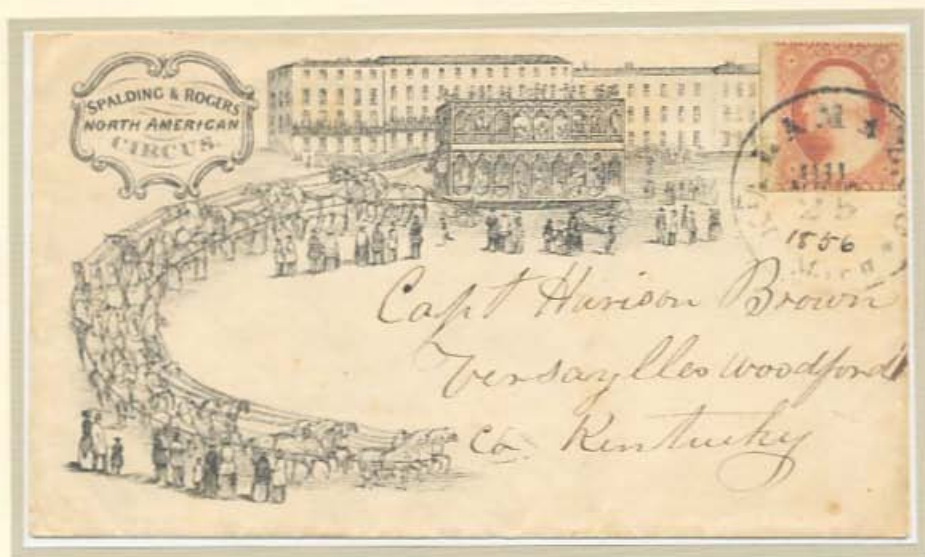 SPALDING & ROGERS
NORTH AMERICAN
CIRCUS.
25
1856
Mich
Capt Harison Brown
Versaylles Woodford
Co. Kentucky